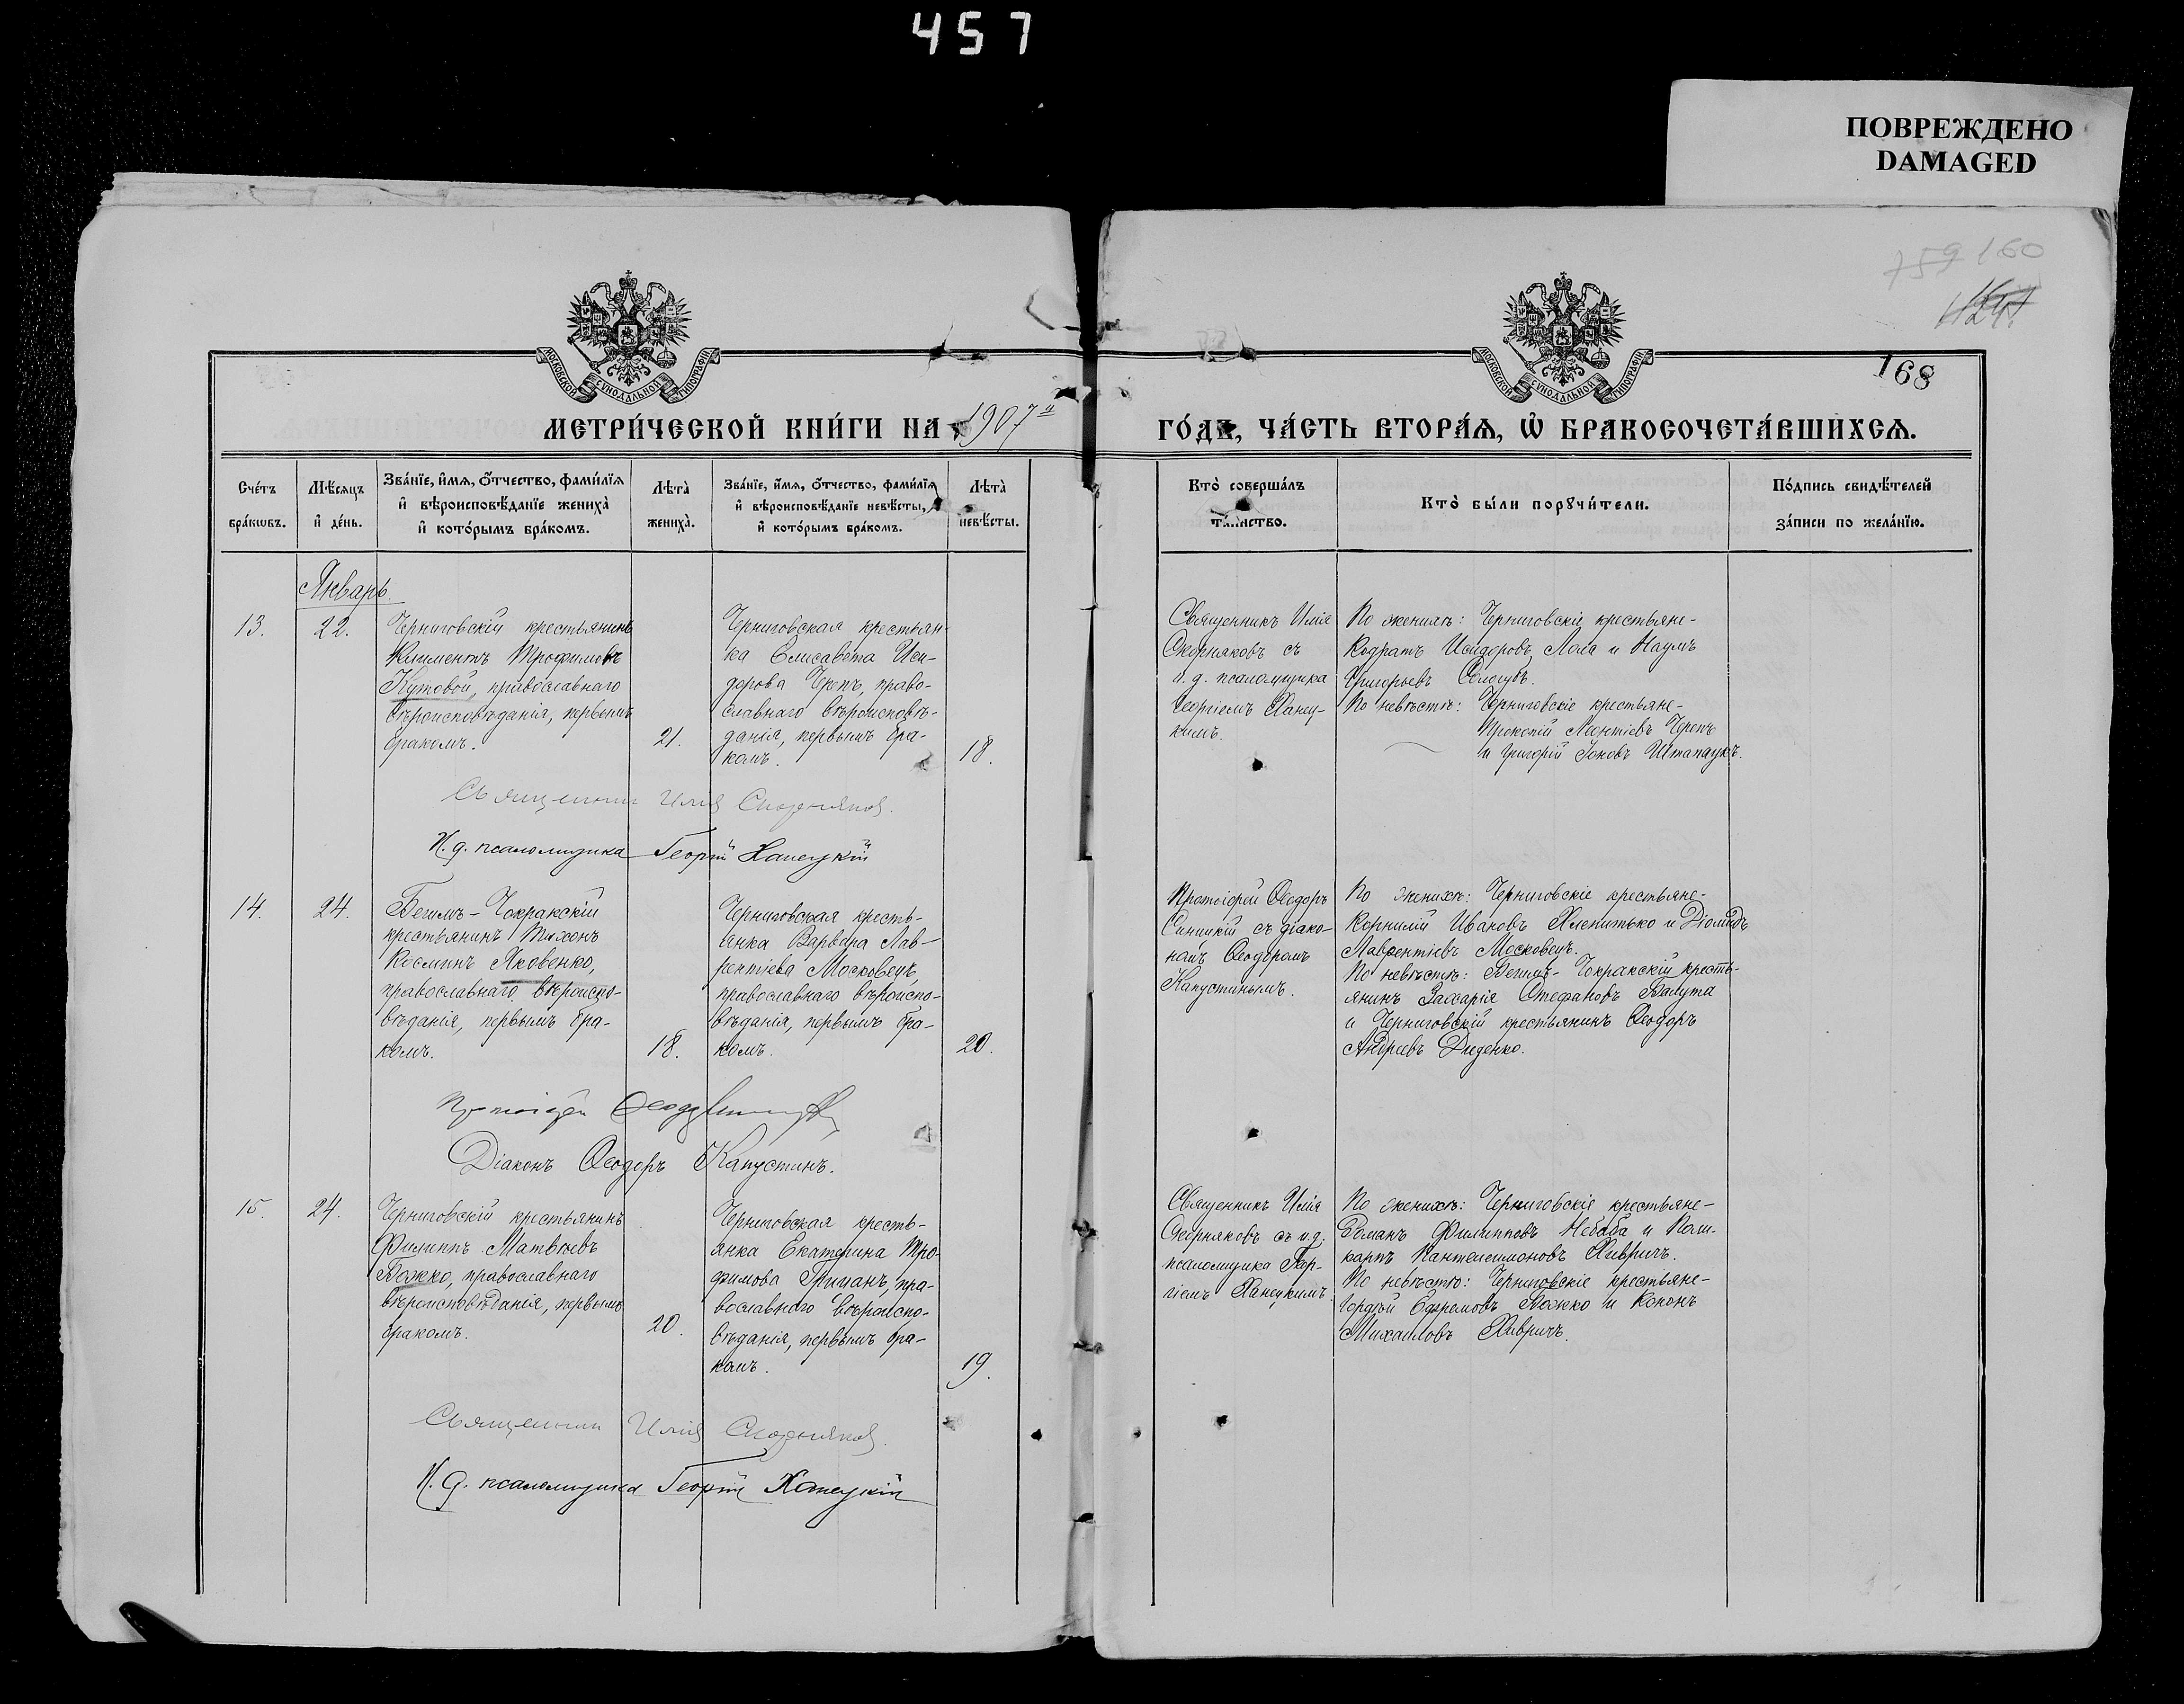 457
ПОВРЕЖДЕНО
DAMAGED
159 160
168
МОСКОВСКОЙ СѴНОДАЛЬНОЙ ТИПОГРАФІИ
МОСКОВСКОЙ СѴНОДАЛЬНОЙ ТИПОГРАФІИ
МЕТРИ́ЧЕСКОЙ КНИ́ГИ НА 1907й
ГО́ДЪ, ЧА́СТЬ ВТОРА́Ѧ, Ѡ҆ БРАКОСОЧЕТА́ВШИХСѦ.
Сче́тъ
бра́кѡвъ.
Мѣ́сяцъ
и҆ де́нь.
Зва́нїе, и҆́мя, ѻ҆́тчество, фами́лїя
и҆ вѣроисповѣ́данїе жениха̀
и҆ кото́рымъ бра́комъ.
Лѣта̀
жениха̀.
Зва́нїе, и҆́мя, ѻ҆́тчество, фами́лїя
и҆ вѣроисповѣ́данїе невѣ́сты,
и҆ кото́рымъ бра́комъ.
Лѣта̀
невѣ́сты.
Кто̀ соверша́лъ
та́инство.
Кто̀ бы́ли порꙋчи́тели.
По́дпись свидѣ́телей
за́писи по жела́нїю.
Январь.
13.
22.
Черниговскій крестьянинъ
Климентъ Трофимовъ
Кутовой, православнаго
вѣроисповѣданія, первымъ
бракомъ.
21.
Черниговская крестьян-
ка Елисавета Иси-
дорова Черепъ, право-
славнаго вѣроисповѣ-
данія, первымъ бра-
комъ.
18.
Священникъ Илія
Скорняковъ съ
и. д. псаломщика
Георгіемъ Ханец-
кимъ.
По женихѣ: Черниговскіе крестьяне-
Кодратъ Исидоровъ Лола и Наумъ
Григорьевъ Сологубъ.
По невѣстѣ: Черниговскіе крестьяне-
Прокопій Леонтіевъ Черепъ
и Григорій Іоновъ Штапаукъ.
Священникъ Илія Скорняковъ.
И. д. псаломщика Георгій Ханецкій
14.
24.
Бегимъ-Чокракскій
крестьянинъ Тихонъ
Косминъ Яковенко,
православнаго вѣроиспо-
вѣданія, первымъ бра-
комъ.
18.
Черниговская кресть-
янка Варвара Лав-
рентіева Московецъ,
православнаго вѣроиспо-
вѣданія, первымъ бра-
комъ.
20.
Протоіерей Ѳеодоръ
Синицкій съ діако-
номъ Ѳеодоромъ
Капустинымъ.
По женихѣ: Черниговскіе крестьяне-
Корнилій Ивановъ Хленитько и Діомидъ
Лаврентіевъ Московецъ.
По невѣстѣ: Бегимъ-Чокракскій кресть-
янинъ Захарія Стефановъ Балута
и Черниговскій крестьянинъ Ѳеодоръ
Андреевъ Диденко.
Протоіерей Ѳеодоръ Синицкій
Діаконъ Ѳеодоръ Капустинъ.
15.
24.
Черниговскій крестьянинъ
Филиппъ Матвѣевъ
Божко, православнаго
вѣроисповѣданія, первымъ
бракомъ.
20.
Черниговская кресть-
янка Екатерина Тро-
фимова Грицанъ, пра-
вославнаго вѣроиспо-
вѣданія, первымъ бра-
комъ.
19.
Священникъ Илія
Скорняковъ съ и.д.
псаломщика Геор-
гіемъ Ханецкимъ.
По женихѣ: Черниговскіе крестьяне-
Романъ Филипповъ Небаба и Поли-
карпъ Пантелеимоновъ Хивричъ.
По невѣстѣ: Черниговскіе крестьяне-
Гордѣй Ефремовъ Божко и Кононъ
Михаиловъ Хивричъ.
Священникъ Илія Скорняковъ.
И. д. псаломщика Георгій Ханецкій